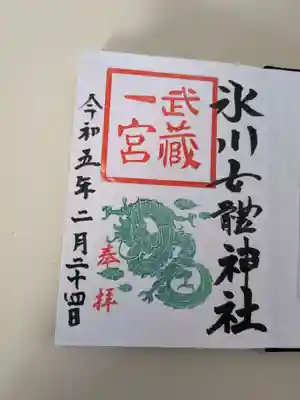 氷川女體神社
武藏
一宮
奉拝
令和五年二月二十四日